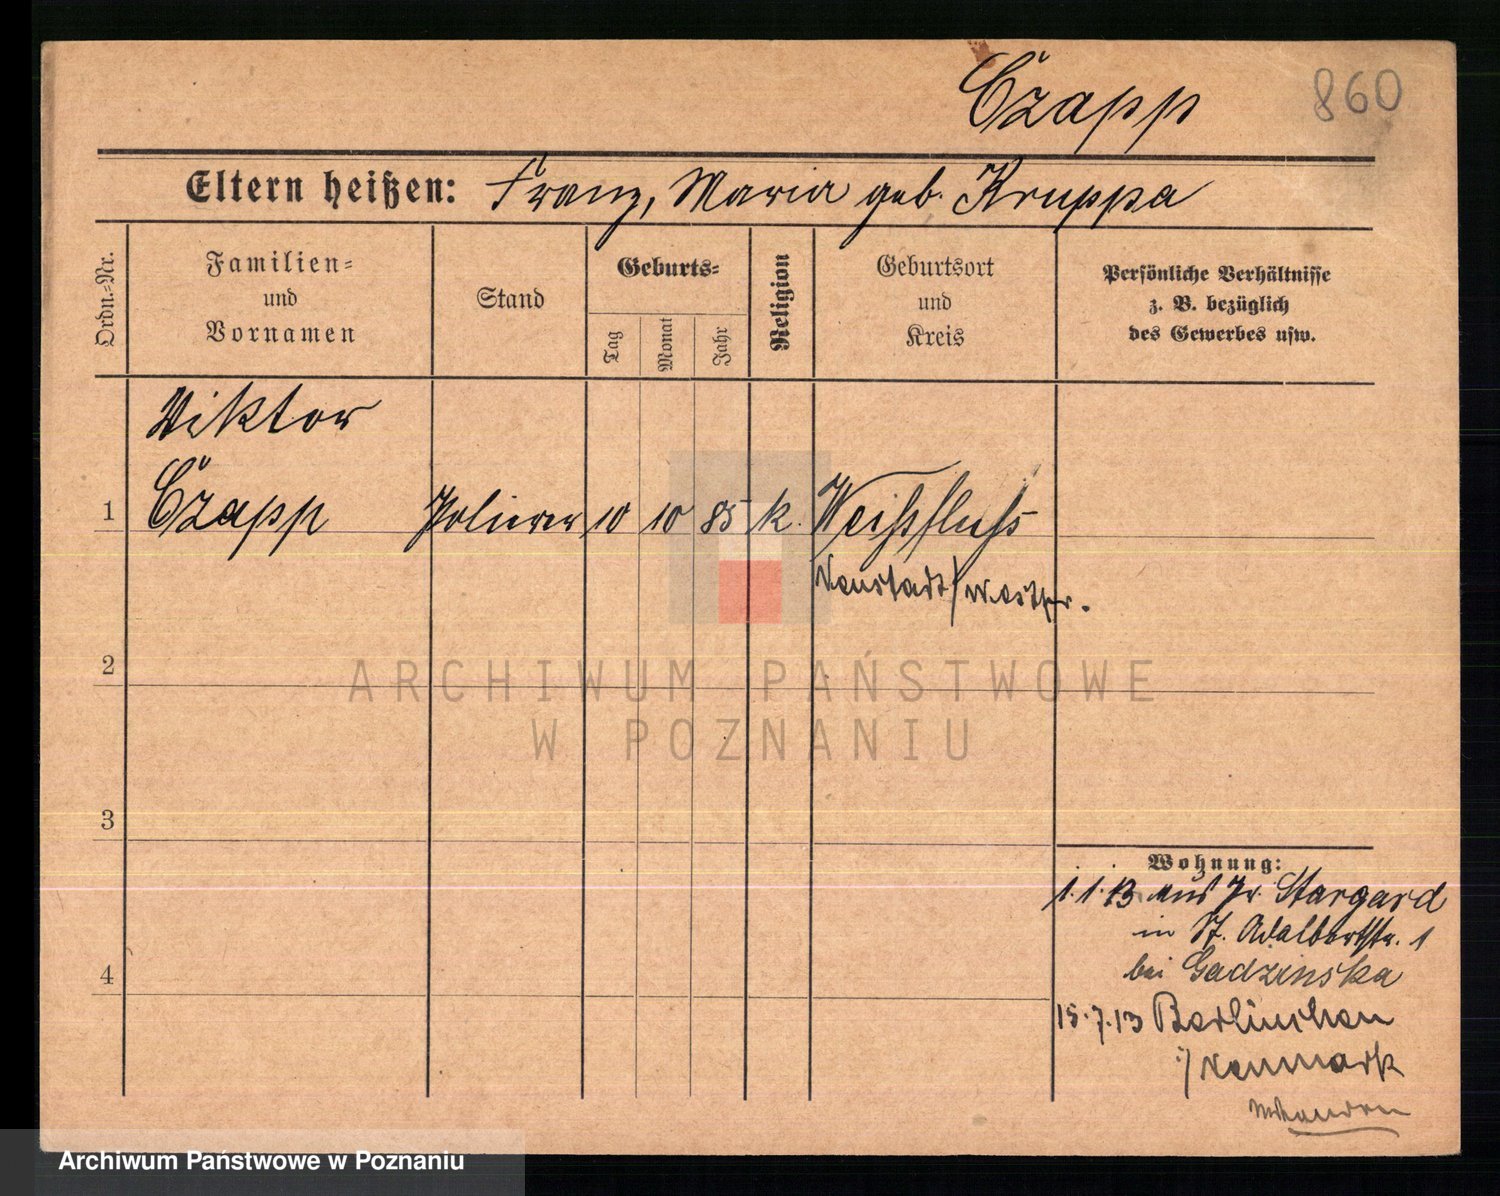 Czapp 860
Eltern heißen: Franz, Maria geb. Kruppa
Ordn.-Nr.
Familien-
und
Vornamen
Stand
Geburts-
Tag
Monat
Jahr
Religion
Geburtsort
und
Kreis
Persönliche Verhältnisse
z. B. bezüglich
des Gewerbes usw.
Viktor
1 Czapp Polierer 10 10 85 k. Weißfluß
Neustadt/Westpr.
2
ARCHIWUM PAŃSTWOWE
W POZNANIU
3
4
Wohnung:
1.1.13 aus Pr. Stargard
in St. Adalbertstr. 1
bei Gadzinska
15.7.13 Berlinchen
i/Neumark
Archiwum Państwowe w Poznaniu